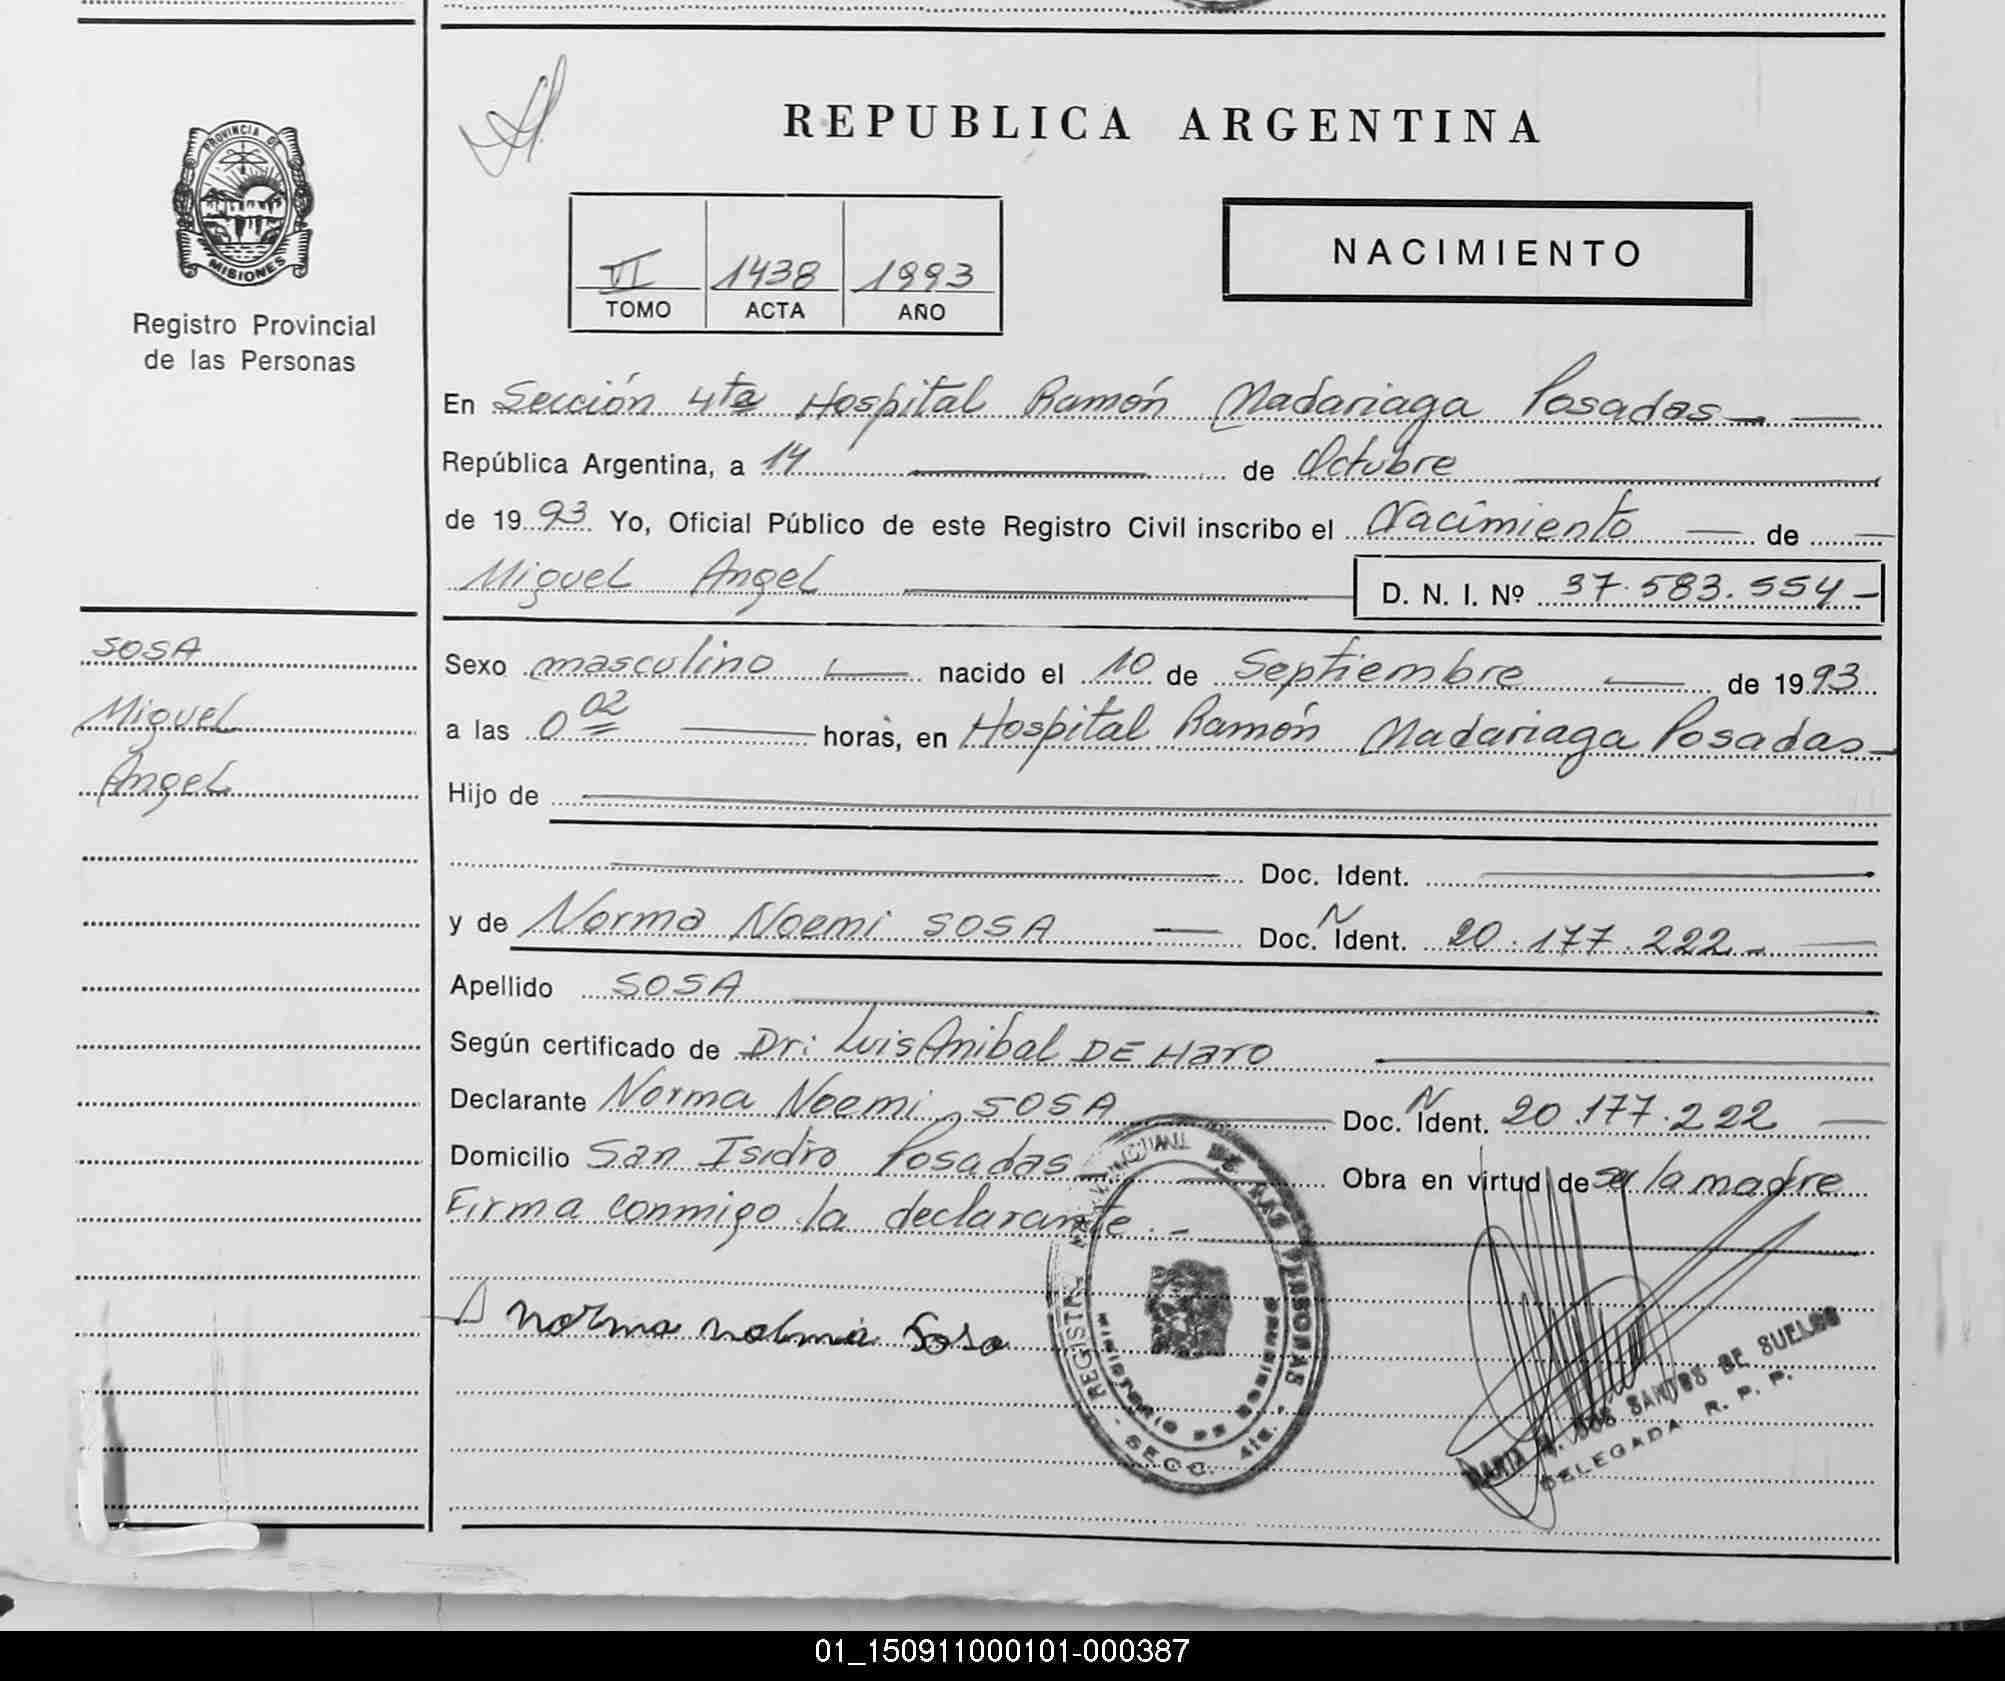 PROVINCIA DE
MISIONES
Registro Provincial
de las Personas
SOSA
Miguel
Angel
REPUBLICA ARGENTINA
VI 1438 1993
TOMO ACTA AÑO
NACIMIENTO
En Sección 4ta Hospital Ramón Madariaga Posadas
República Argentina, a 14 de Octubre
de 1993 Yo, Oficial Público de este Registro Civil inscribo el Nacimiento de
Miguel Angel D. N. I. Nº 37.583.554
Sexo masculino nacido el 10 de Septiembre de 1993
a las 0 02 horas, en Hospital Ramón Madariaga Posadas
Hijo de
Doc. Ident.
y de Norma Noemi SOSA Doc. N Ident. 20.177.222
Apellido SOSA
Según certificado de Dr: Luis Anibal DE Haro
Declarante Norma Noemi SOSA Doc. N Ident. 20.177.222
Domicilio San Isidro Posadas Obra en virtud de ser la madre
Firma conmigo la declarante.
norma Sosa
REGISTRO PROVINCIAL DE LAS PERSONAS
MINISTERIO DE
SECC. 4ta.
DOS SANTOS DE SUELDO
DELEGADA R. P. P.
01_150911000101-000387